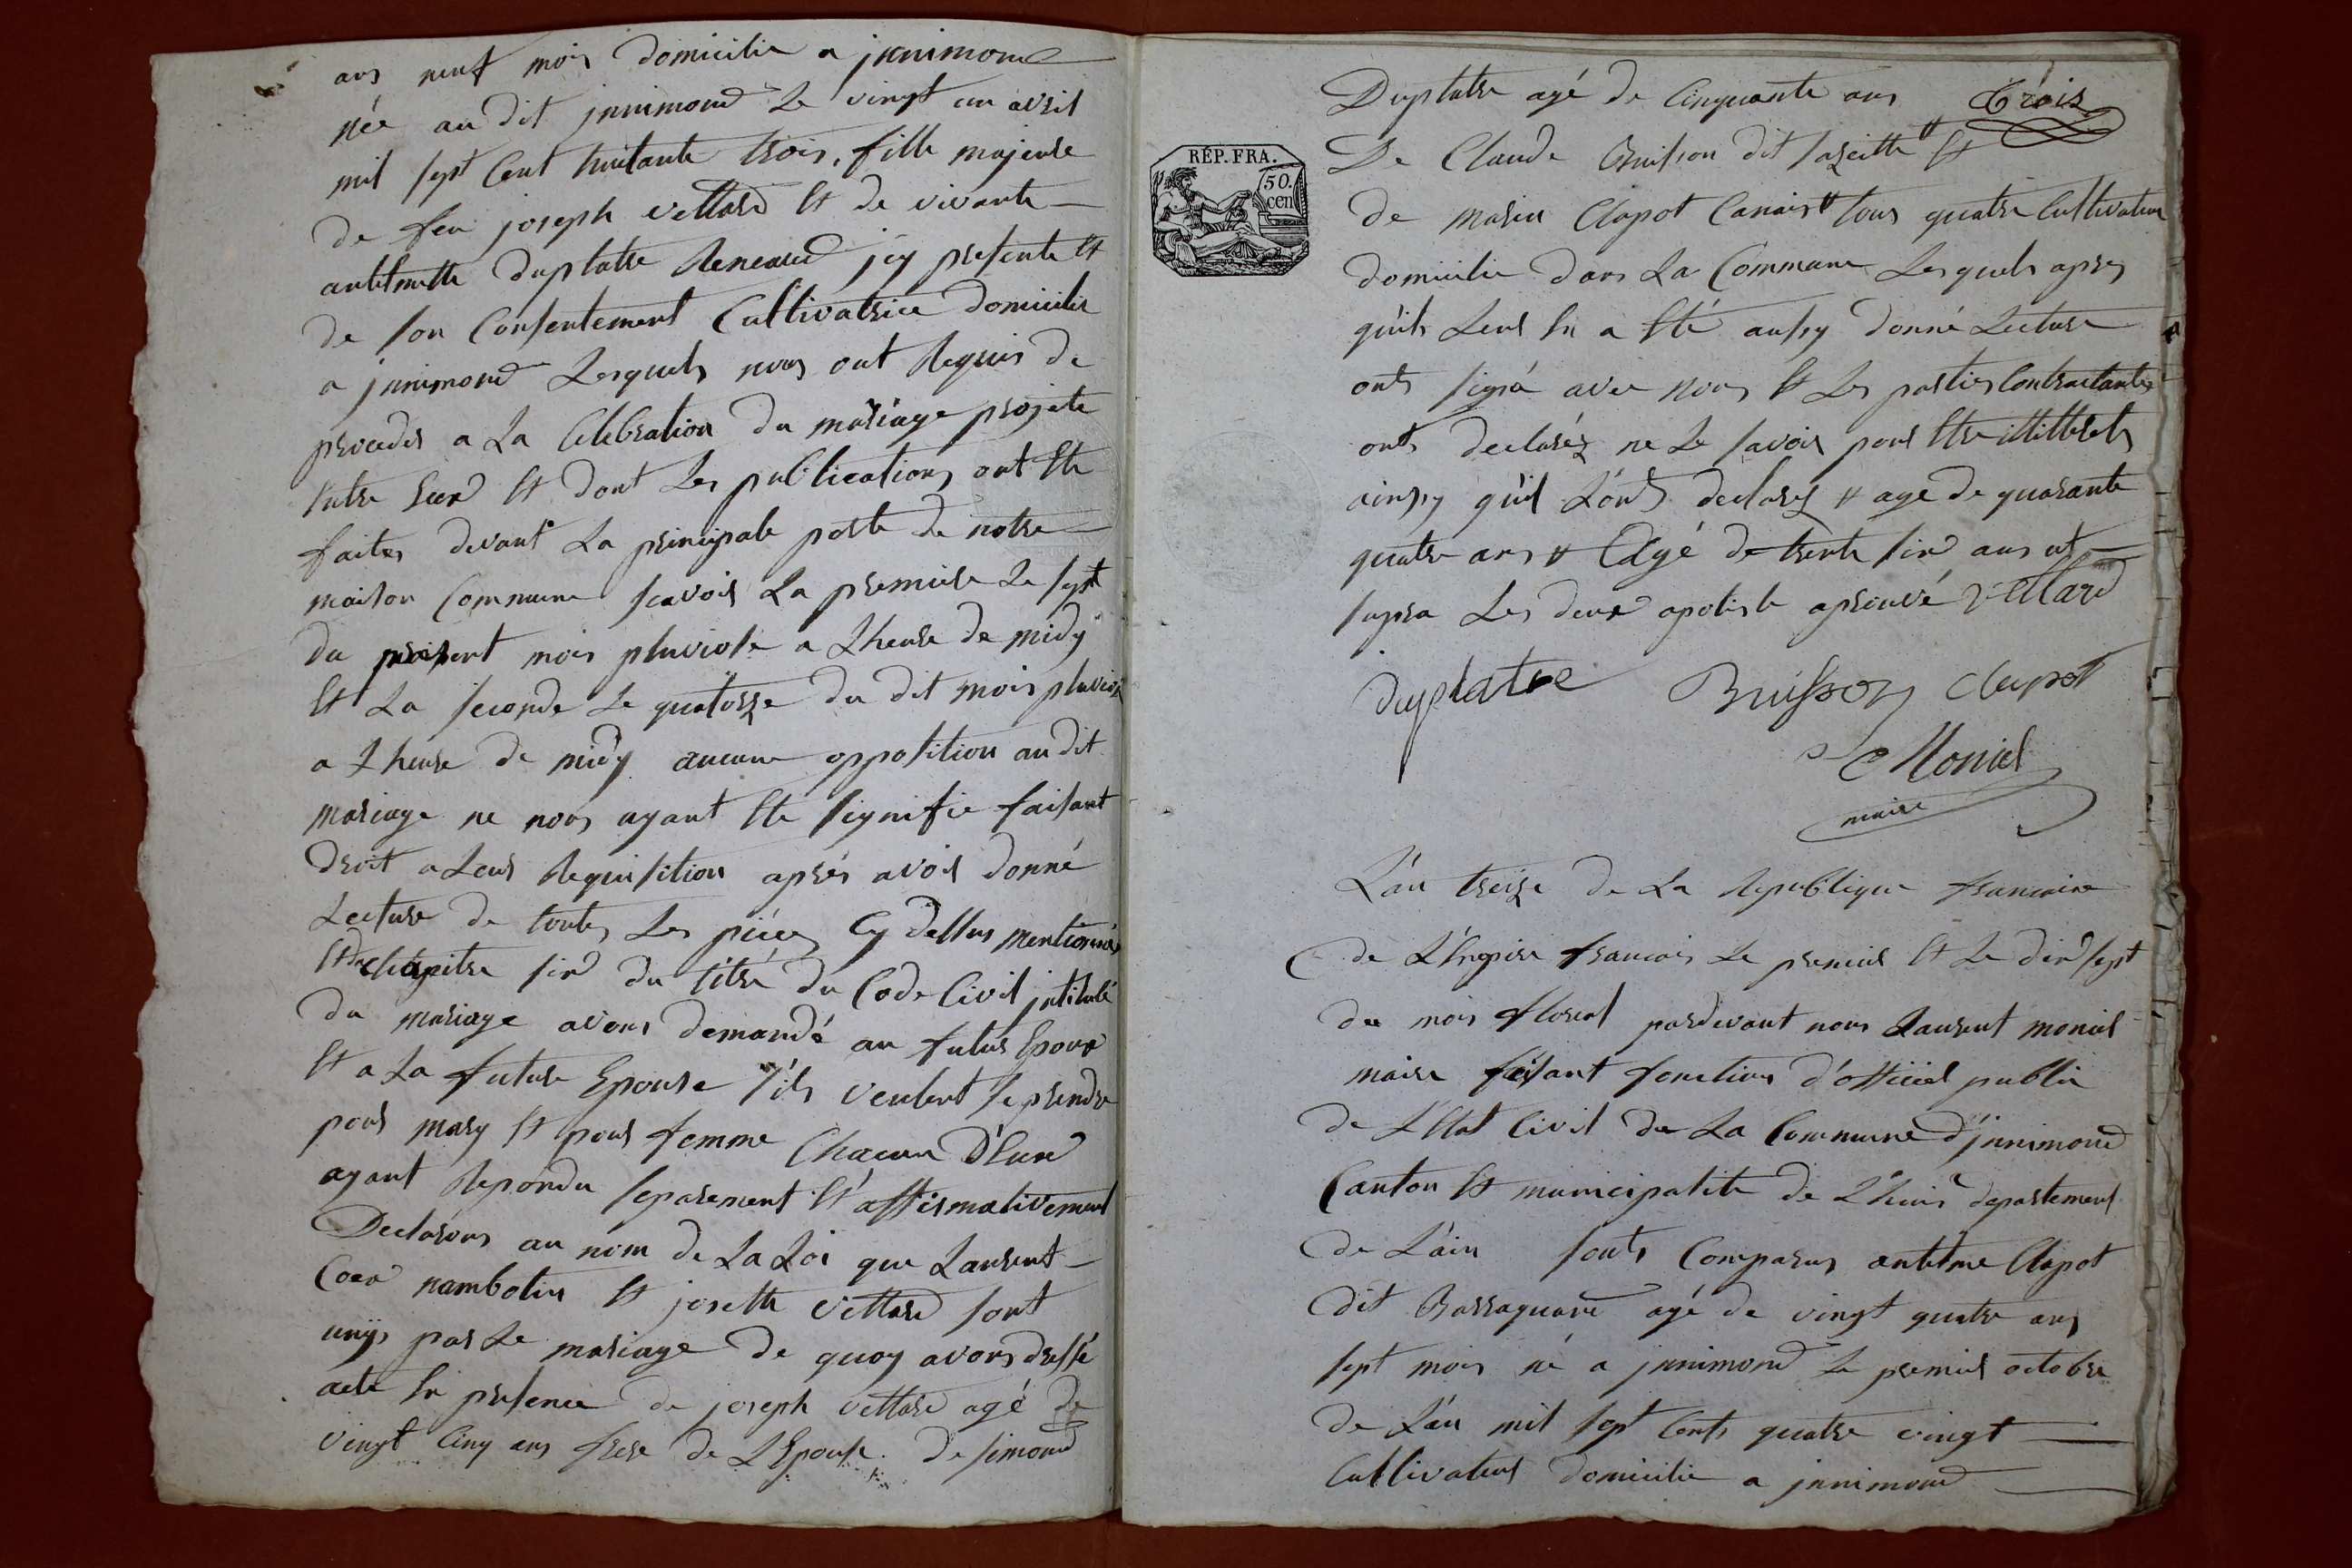 ans neuf mois domicilie a jnnimond
née au dit jnnimond Le vingt un avril
mil sept Cent huitante trois, fille majeure
de feu joseph vettard Et de vivante
antelmette duplatre Reneaud jcy presente Et
de son Consentement Cultivatrice domicilie
a jnnimond Lesquels nous ont Requis de
proceder a La Celebration du mariage projete
Entre Eux Et dont Les publications ont Ete
faites devant La principale porte de notre
maison Commune scavoir La premiere Le sept
du present mois pluviose a Lheure de midy
Et La seconde Le quatorze du dit mois pluviose
a Lheure de midy aucune opposition au dit
mariage ne nous ayant Ete signifie faisant
droit a Leur Requisition aprés avoir donné
Lecture de toutes Les piéces Cy dessus mentionnés
Et du chapitre six du titre du Code Civil jntitulé
du mariage avons demandé au futur Epoux
Et a La future Epouse s'ils veulent se prendre
pour mary Et pour femme Chacun D'Eux
ayant Repondu separement Et affirmativement
Declarons au nom de La Loi que Laurent
Coux nambotin Et josette vettard sont
unys par Le mariage de quoy avons dressé
acte En presence de joseph vettard agé de
vingt Cinq ans frere de LEpouse. de simond
Trois
Duplatre agé de Cinquante ans
De Claude Buisson dit Lazeitte # Et
de marin Clapot Canais # tous quatre Cultivateurs
domicilie dans La Commune Lesquels apres
quils Leur En a Eté aussy donné Lecture
onts signé avec nous Et Les parties Contractantes
onts declaréz ne Le savoir pour Etre illitterets
ainsy quil L'onts declarez # age de quarante
quatre ans # Eagé de trente six ans ut
supra Les deux apostile aprouvé vettard
duplatre Buisson clapot
Moniel
maire
REP. FRA.
50.
cen
L'an treize de La Republique francaise
de L'Empire francois Le premier Et Le dix sept
du mois floreal pardevant nous Laurent moniel
maire faisant fonctions d'officiel public
de LEtat Civil de La Commune d'jnnimond
Canton Et municipalite de Lhuis departement
de L'ain sonts Comparus antelme Clapot
dit Bassaquare agé de vingt quatre ans
sept mois né a jnnimond Le premier octobre
de L'an mil sept Cents quatre vingt
Cultivateur domicilie a jnnimond